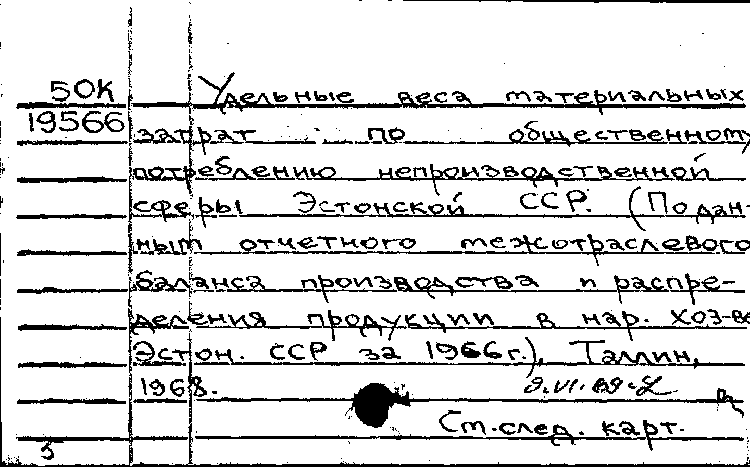 50К
19566
Удельные веса материальных
затрат по общественному
потреблению непроизводственной
сферы Эстонской ССР. (По дан-
ным отчетного межотраслевого
баланса производства и распре-
деления продукции в нар. хоз-ве
Эстон. ССР за 1966 г.), Таллин,
1968.
См. след. карт.
5